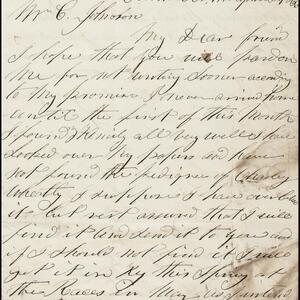 Mr C. Johnson
My Dear friend
I hope that you will pardon
me for not writing sooner according
to my promise I never arrived home
until the first of this Month
I found family all very well I have
looked over my papers and have
not found the pedigree of Charley
I suppose I have
it but rest assured that I will
find it and send it to you and
if I should not find it I will
get it in Ky this Spring at
the Races in May